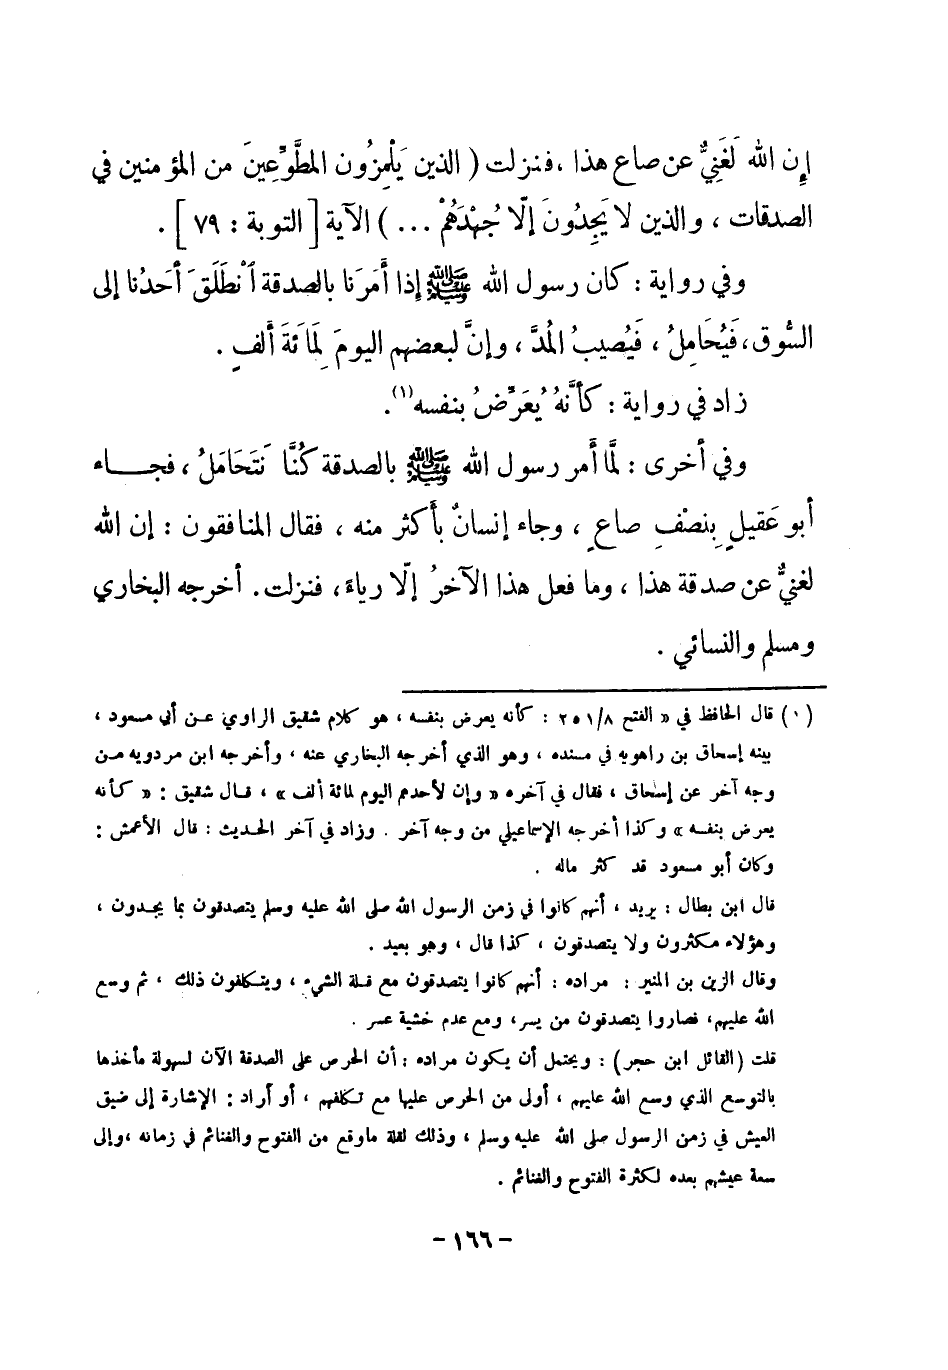 إن الله لَغَنِيٌّ عن صاع هذا ، فنزلت ( الذين يَلْمِزُون المطَّوِّعِينَ من المؤمنين في
الصدقات ، والذين لا يَجِدُونَ إلّا جُهْدَهُمْ ... ) الآية [ التوبة : ٧٩ ] .
وفي رواية : كان رسول الله ﷺ إذا أَمَرَنا بالصدقة ٱنْطَلَقَ أحَدُنا إلى
السُّوق ، فَيُحَامِلُ ، فَيُصيبُ المُدَّ ، وإنَّ لبعضهم اليومَ لِمَائَةَ ألفٍ .
زاد في رواية : كأنَّهُ يُعَرِّضُ بنفسه(١).
وفي أخرى : لمَّا أَمر رسول الله ﷺ بالصدقة كُنَّا نَتَحَامَلُ ، فجـــاء
أبو عَقيلٍ بِنصْفِ صاعٍ ، وجاء إنسانٌ بأكثر منه ، فقال المنافقون : إن الله
لغنيٌّ عن صدقة هذا ، وما فعل هذا الآخرُ إلّا رياءً ، فنزلت . أخرجه البخاري
ومسلم والنسائي .
(١) قال الحافظ في « الفتح ٢٥١/٨ : كأنه يعرض بنفسه ، هو كلام شقيق الراوي عـن أبي مسعود ،
بينه إسحاق بن راهويه في مسنده ، وهو الذي أخرجه البخاري عنه ، وأخرجه ابن مردويه مـن
وجه آخر عن إسحاق ، فقال في آخره « وإن لأحدهم اليوم لمائة ألف » ، قـال شقيق : « كـأنه
يعرض بنفسه » وكذا أخرجه الإسماعيلي من وجه آخر . وزاد في آخر الحديث : قال الأعمش :
وكان أبو مسعود قد كثر ماله .
قال ابن بطال : يريد ، أنهم كانوا في زمن الرسول الله صلى الله عليه وسلم يتصدقون بما يجـدون ،
وهؤلاء مكثرون ولا يتصدقون ، كذا قال ، وهو بعيد .
وقال الزين بن المنير : مراده : أنهم كانوا يتصدقون مع قـلة الشيء ، ويتـكلفون ذلك ، ثم وسع
الله عليهم، فصاروا يتصدقون من يسر، ومع عدم خشية عسر .
قلت (القائل ابن حجر) : ويحتمل أن يكون مراده : أن الحرص على الصدقة الآن لسهولة مأخذها
بالتوسع الذي وسع الله عليهم ، أولى من الحرص عليها مع تـكلفهم ، أو أراد : الإشارة إلى ضيق
العيش في زمن الرسول صلى الله عليه وسلم ، وذلك لقلة ماوقع من الفتوح والغنائم في زمانه ،وإلى
سعة عيشهم بعده لكثرة الفتوح والغنائم .
- ١٦٦ -